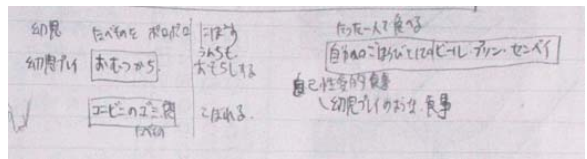 幼児 たべものを ポロポロ こぼす
うんちも
幼児プレイ おむつから おもらしする
コンビニのゴミ
たべもの
こぼれる.
たった一人で食べる
自分へのごほうびとしてのビール・プリン・センベイ
自己性愛的食事
幼児プレイのような食事